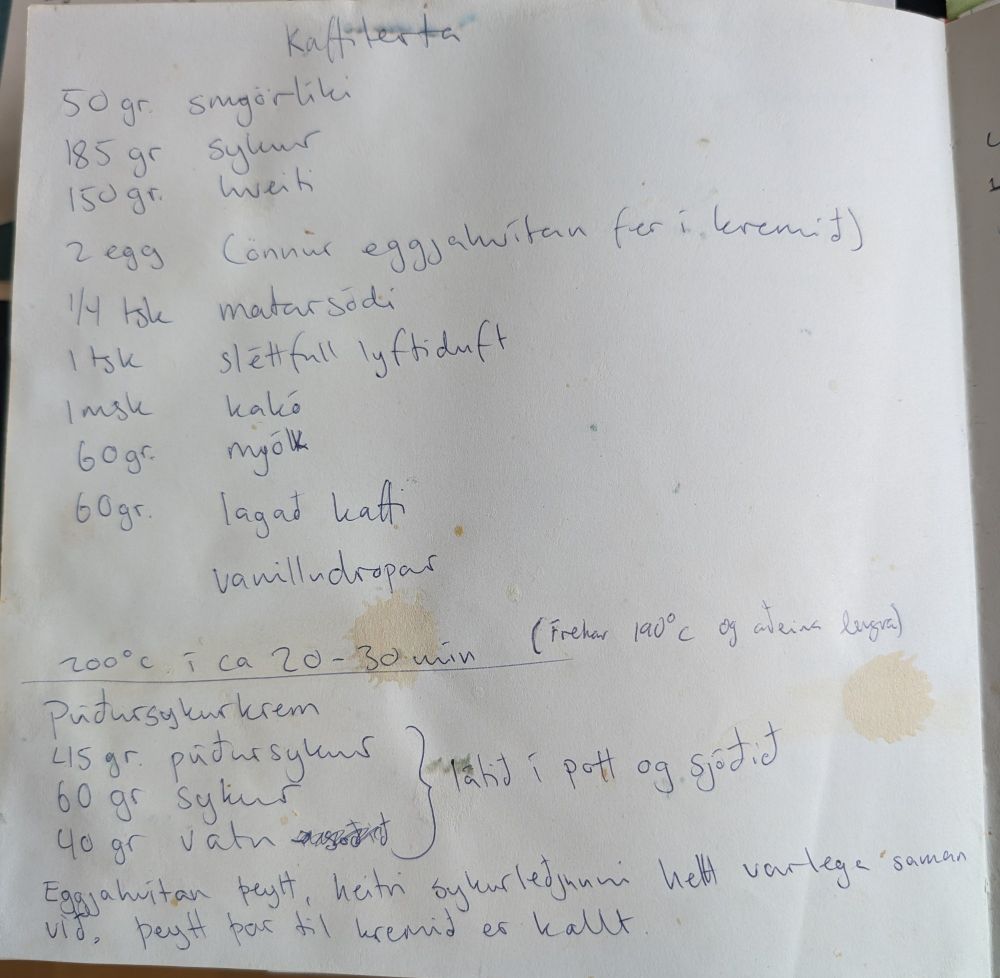 Kaffiterta
50 gr. smjörlíki
185 gr sykur
150 gr. hveiti
2 egg (önnur eggjahvítan fer í kremið)
1/4 tsk matarsódi
1 tsk sléttfull lyftiduft
1 msk kakó
60 gr. mjólk
60 gr. lagað kaffi
vanilludropar
200°c í ca 20-30 mín (Frekar 190°c og aðeins lengra)
Púðursykurkrem
45 gr. púðursykur
60 gr sykur
40 gr vatn
látið í pott og sjóðið
Eggjahvítan þeytt, heitri sykurleðjunni hellt varlega saman
við, þeytt þar til kremið er kallt.